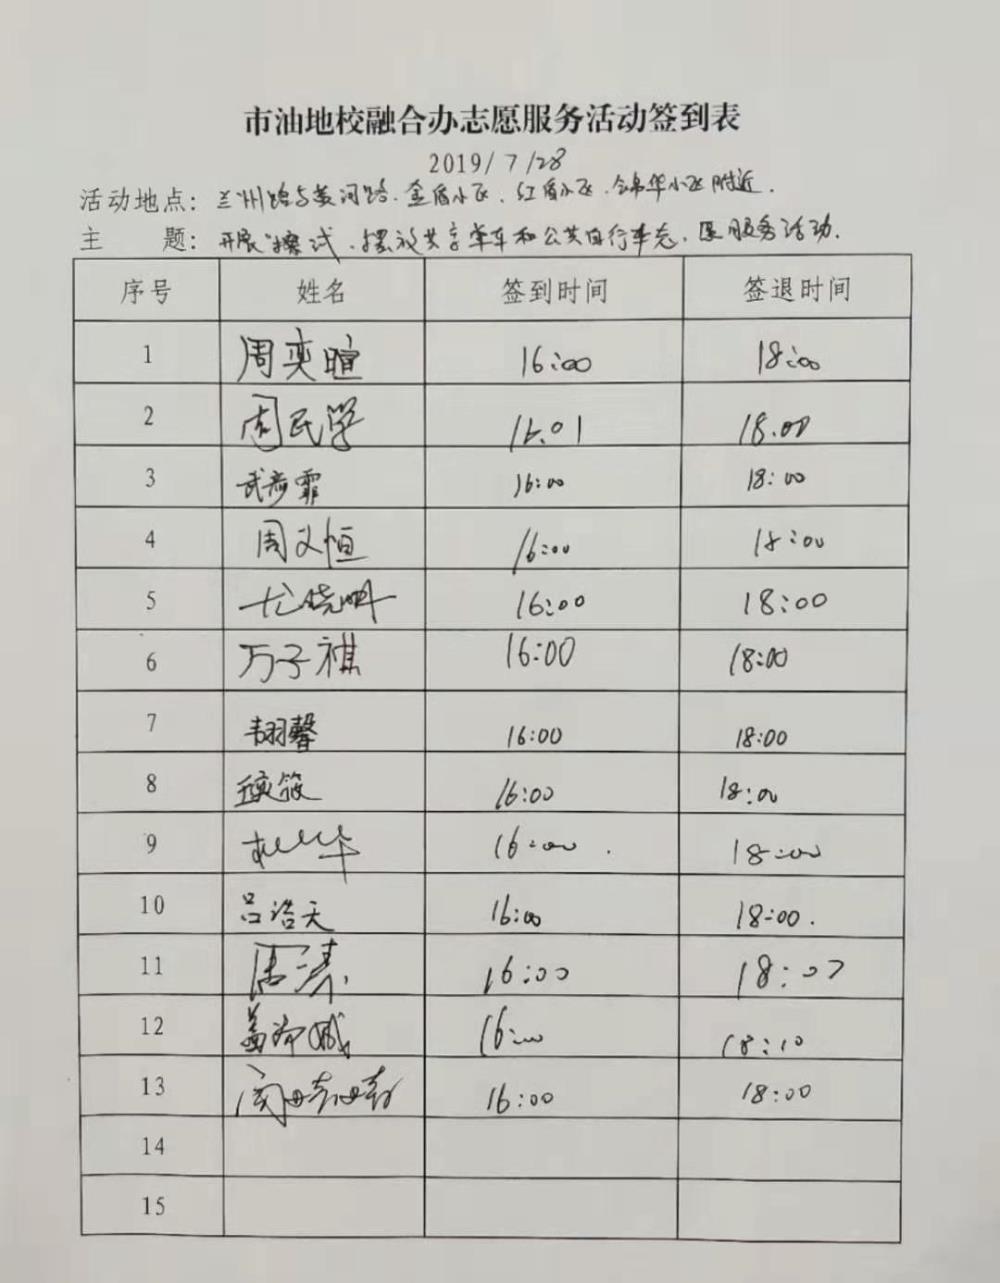 市油地校融合办志愿服务活动签到表
2019/7/28
活动地点：兰州路与黄河路、金盾小区、红盾小区、锦华小区附近.
主 题：开展"擦试、摆放共享单车和公共自行车志、愿服务活动.
序号 姓名 签到时间 签退时间
1 周奕暄 16:00 18:00
2 周民学 16.01 18.00
3 武彦霏 16:00 18:00
4 周文恒 16:00 18:00
5 尤晓 16:00 18:00
6 万子祺 16:00 18:00
7 韩羽馨 16:00 18:00
8 16:00 18:00
9 华 16:00 18:00
10 吕浩天 16:00 18:00.
11 周涛 16:00 18:07
12 16:00 18:10
13 16:00 18:00
14
15